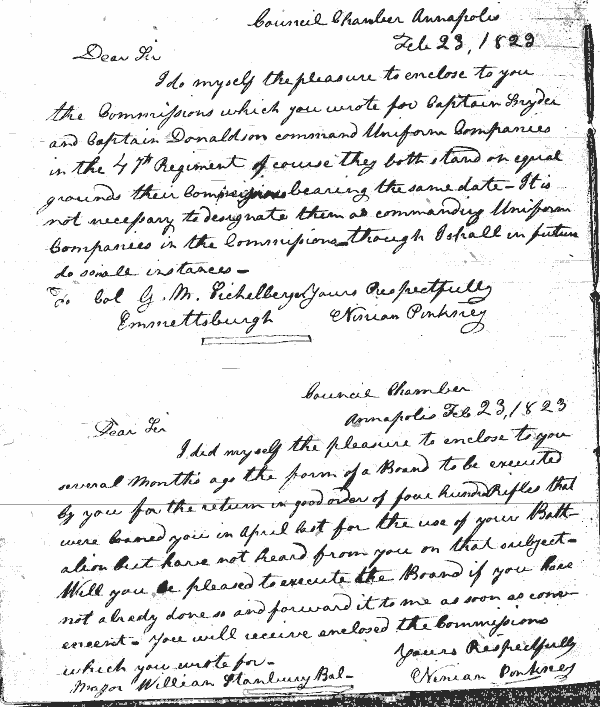 Council Chamber Annapolis
Feb 23, 1823
Dear Sir
I do myself the pleasure to enclose to you
the Commissions which you wrote for Captain Snyder
and Captain Donaldson command Uniform Companies
in the 47th Regiment of course they both stand on equal
grounds their Commissions bearing the same date - It is
not necessary to designate them as commanding Uniform
Companies in the Commissions though I shall in future
do so in all instances -
To Col G. M. Eichelberger Yours Respectfully
Emmettsburgh Ninian Pinkney
Council Chamber
Annapolis Feb 23, 1823
Dear Sir
I did myself the pleasure to enclose to you
several Months ago the form of a Board to be executed
by you for the return in good order of four hundred Rifles that
were loaned you in April last for the use of your Batt-
alion but have not heard from you on that subject -
Will you be pleased to execute the Board if you have
not already done so and forward it to me as soon as conv-
enient - You will receive enclosed the Commissions
which you wrote for - Yours Respectfully
Major William Stansbury Bal - Ninian Pinkney